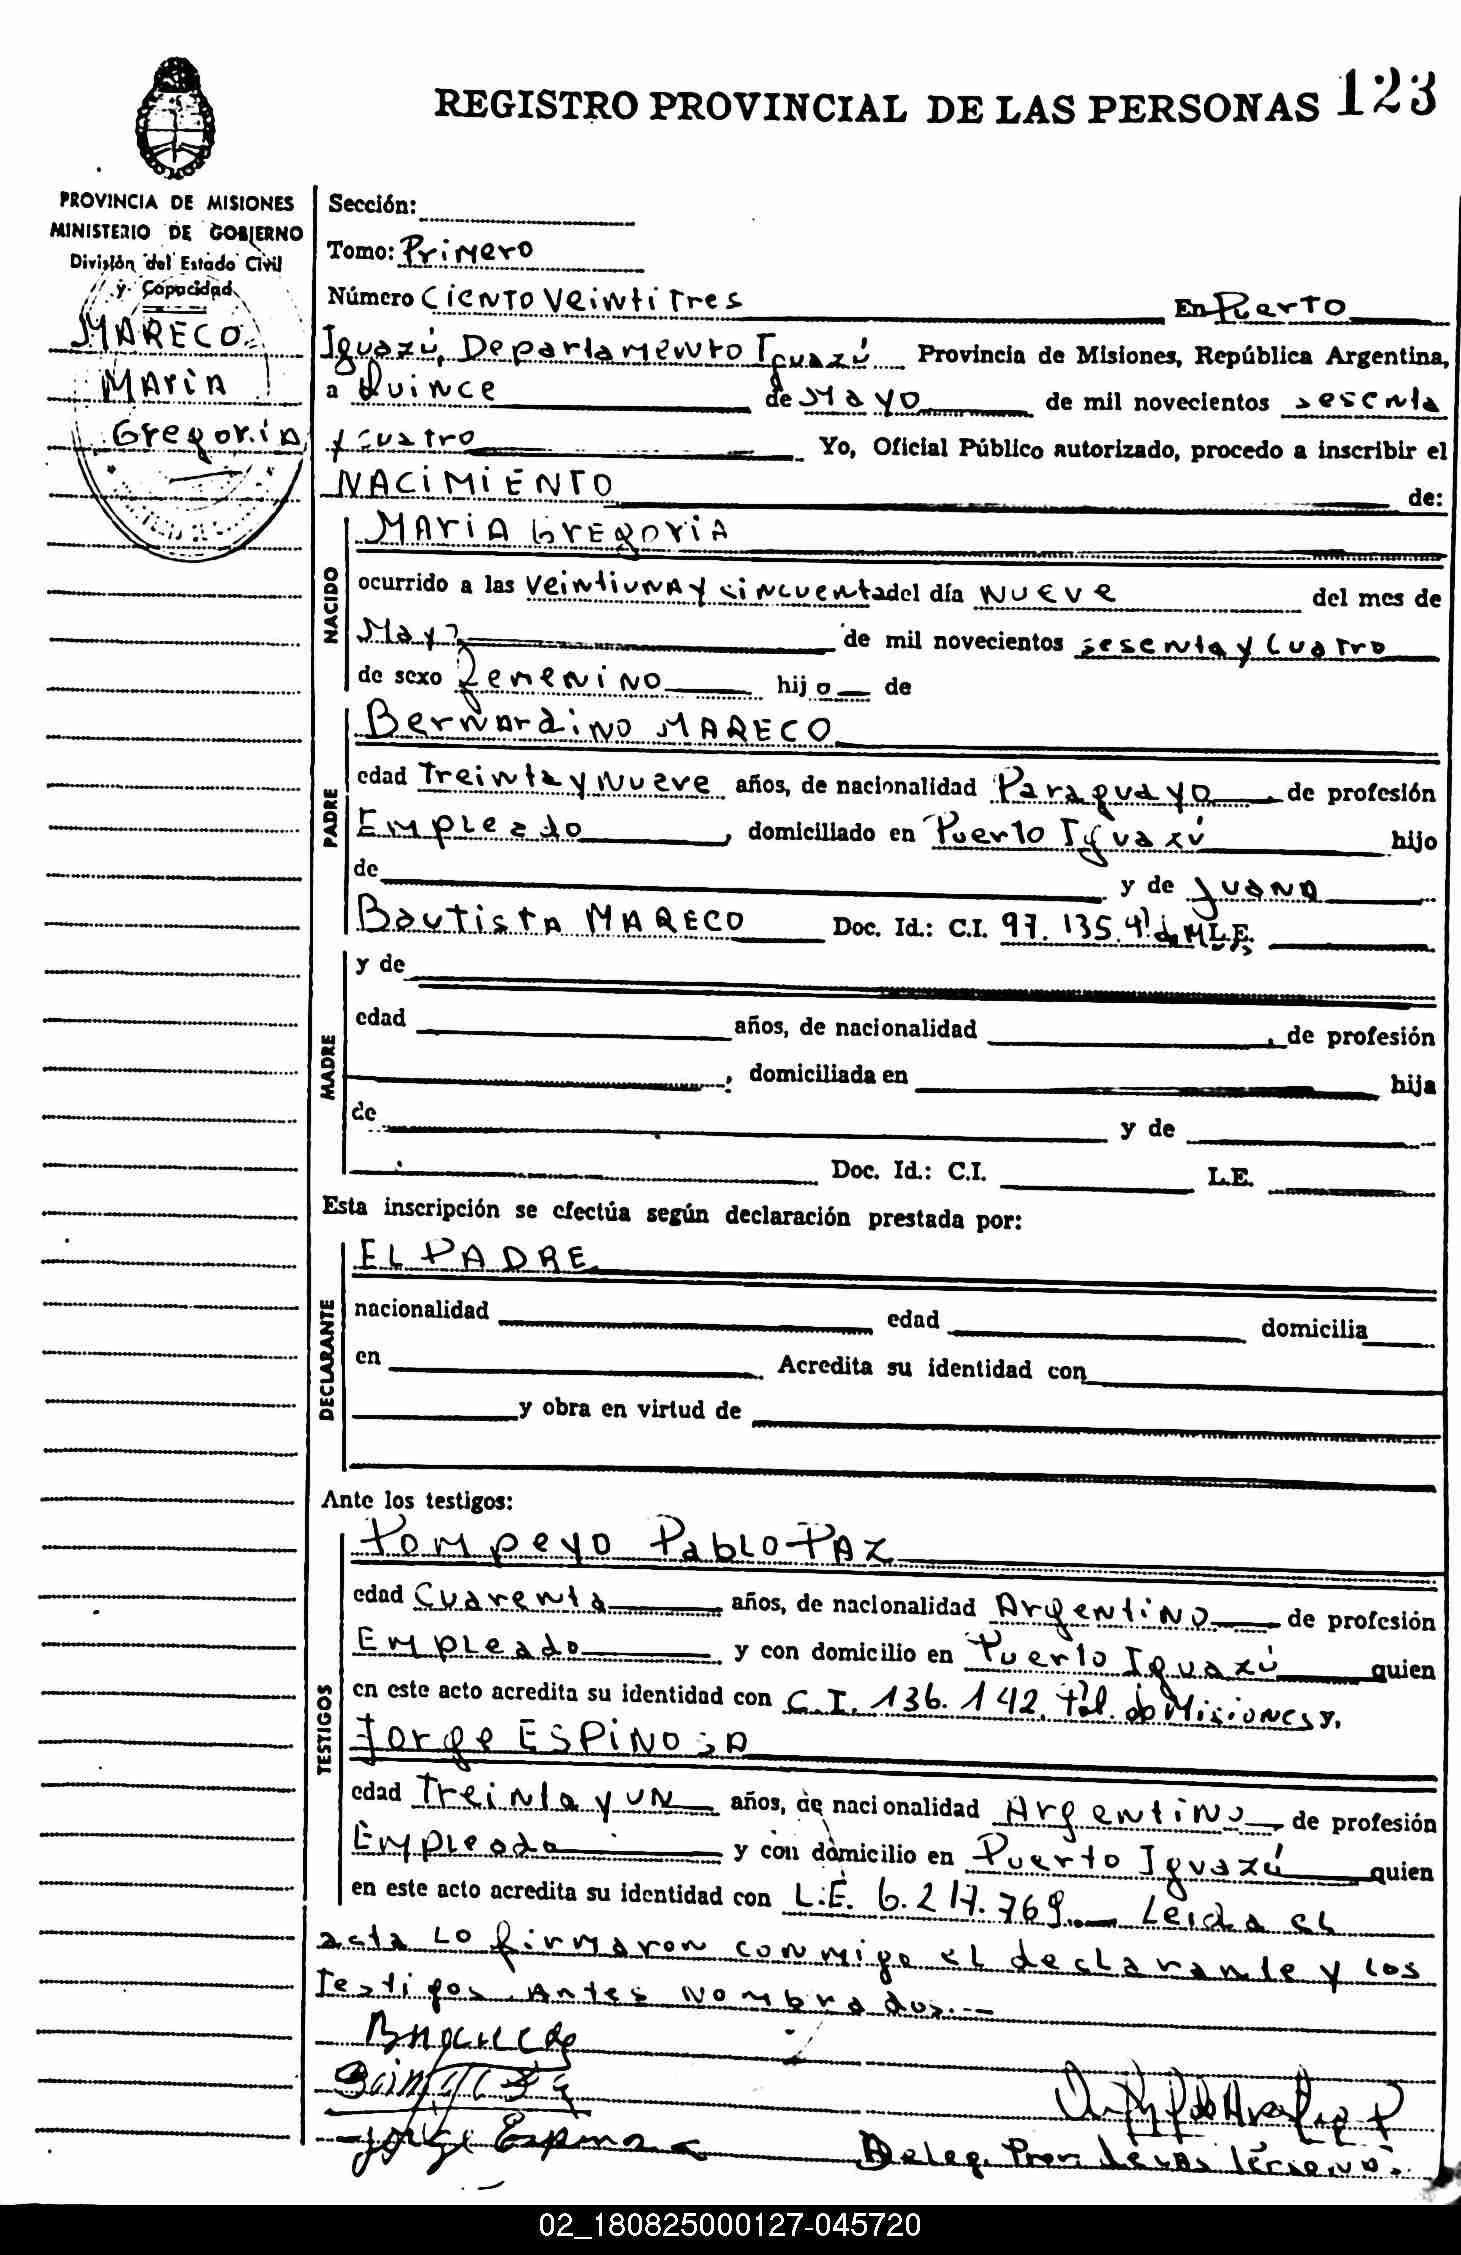 REGISTRO PROVINCIAL DE LAS PERSONAS 123
PROVINCIA DE MISIONES
MINISTERIO DE GOBIERNO
División del Estado Civil
y Capacidad
MARECO
MARIA
Gregoria
Sección:
Tomo: Primero
Número Ciento Veinti Tres En Puerto
Iguazú, Departamento Iguazú Provincia de Misiones, República Argentina,
a Quince de Mayo de mil novecientos sesenta
y cuatro Yo, Oficial Público autorizado, procedo a inscribir el
NACIMIENTO de:
NACIDO
MARIA GREGORIA
ocurrido a las Veintiuna y cincuenta del día Nueve del mes de
Mayo de mil novecientos sesenta y Cuatro
de sexo Femenino hijo de
PADRE
Bernardino MARECO
edad Treinta y Nueve años, de nacionalidad Paraguayo, de profesión
Empleado, domiciliado en Puerto Iguazú hijo
de y de Juana
Bautista MARECO Doc. Id.: C.I. 97.135. L.E.
MADRE
y de
edad años, de nacionalidad , de profesión
; domiciliada en hija
de y de
Doc. Id.: C.I. L.E.
Esta inscripción se efectúa según declaración prestada por:
DECLARANTE
EL PADRE
nacionalidad edad domicilia
en Acredita su identidad con
y obra en virtud de
Ante los testigos:
TESTIGOS
Pompeyo Pablo PAZ
edad Cuarenta años, de nacionalidad Argentino de profesión
Empleado y con domicilio en Puerto Iguazú quien
en este acto acredita su identidad con C.I. 136.142. Pol. de Misiones y,
Jorge ESPINOSA
edad Treinta y UN años, de nacionalidad Argentino, de profesión
Empleado y con domicilio en Puerto Iguazú quien
en este acto acredita su identidad con L.E. 6.217.769.— Leida el
acta Lo firmaron conmigo el declarante y los
Testigos Antes Nombrados.—
Jorge Espinosa
Deleg. Prov. de las Personas
02_180825000127-045720